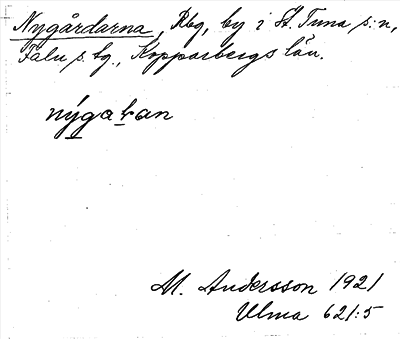 Nygårdarna, Rbg, by i St. Tuna s:n,
Falu s. tg., Kopparbergs län.
nýgakan
M. Andersson 1921
Ulma 621:5